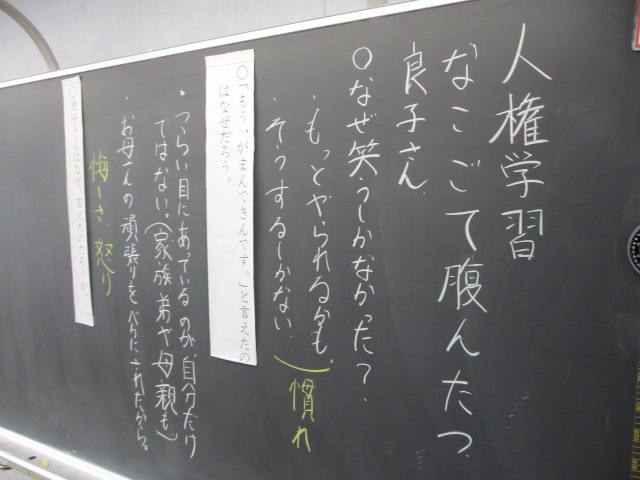 人権学習
なこごて腹んたつ
良子さん
○なぜ笑うしかなかった?
・もっとやられるかも。
・そうするしかない
慣れ
○「もう、がまんできんです。」と言えたの
はなぜだろう。
・つらい目にあっているのが、自分だけ
ではない。(家族、弟や母親も)
・お母さんの頑張りをばかにされたから。
悔しさ 怒り
子さんはなぜ、言えたのだろうか。